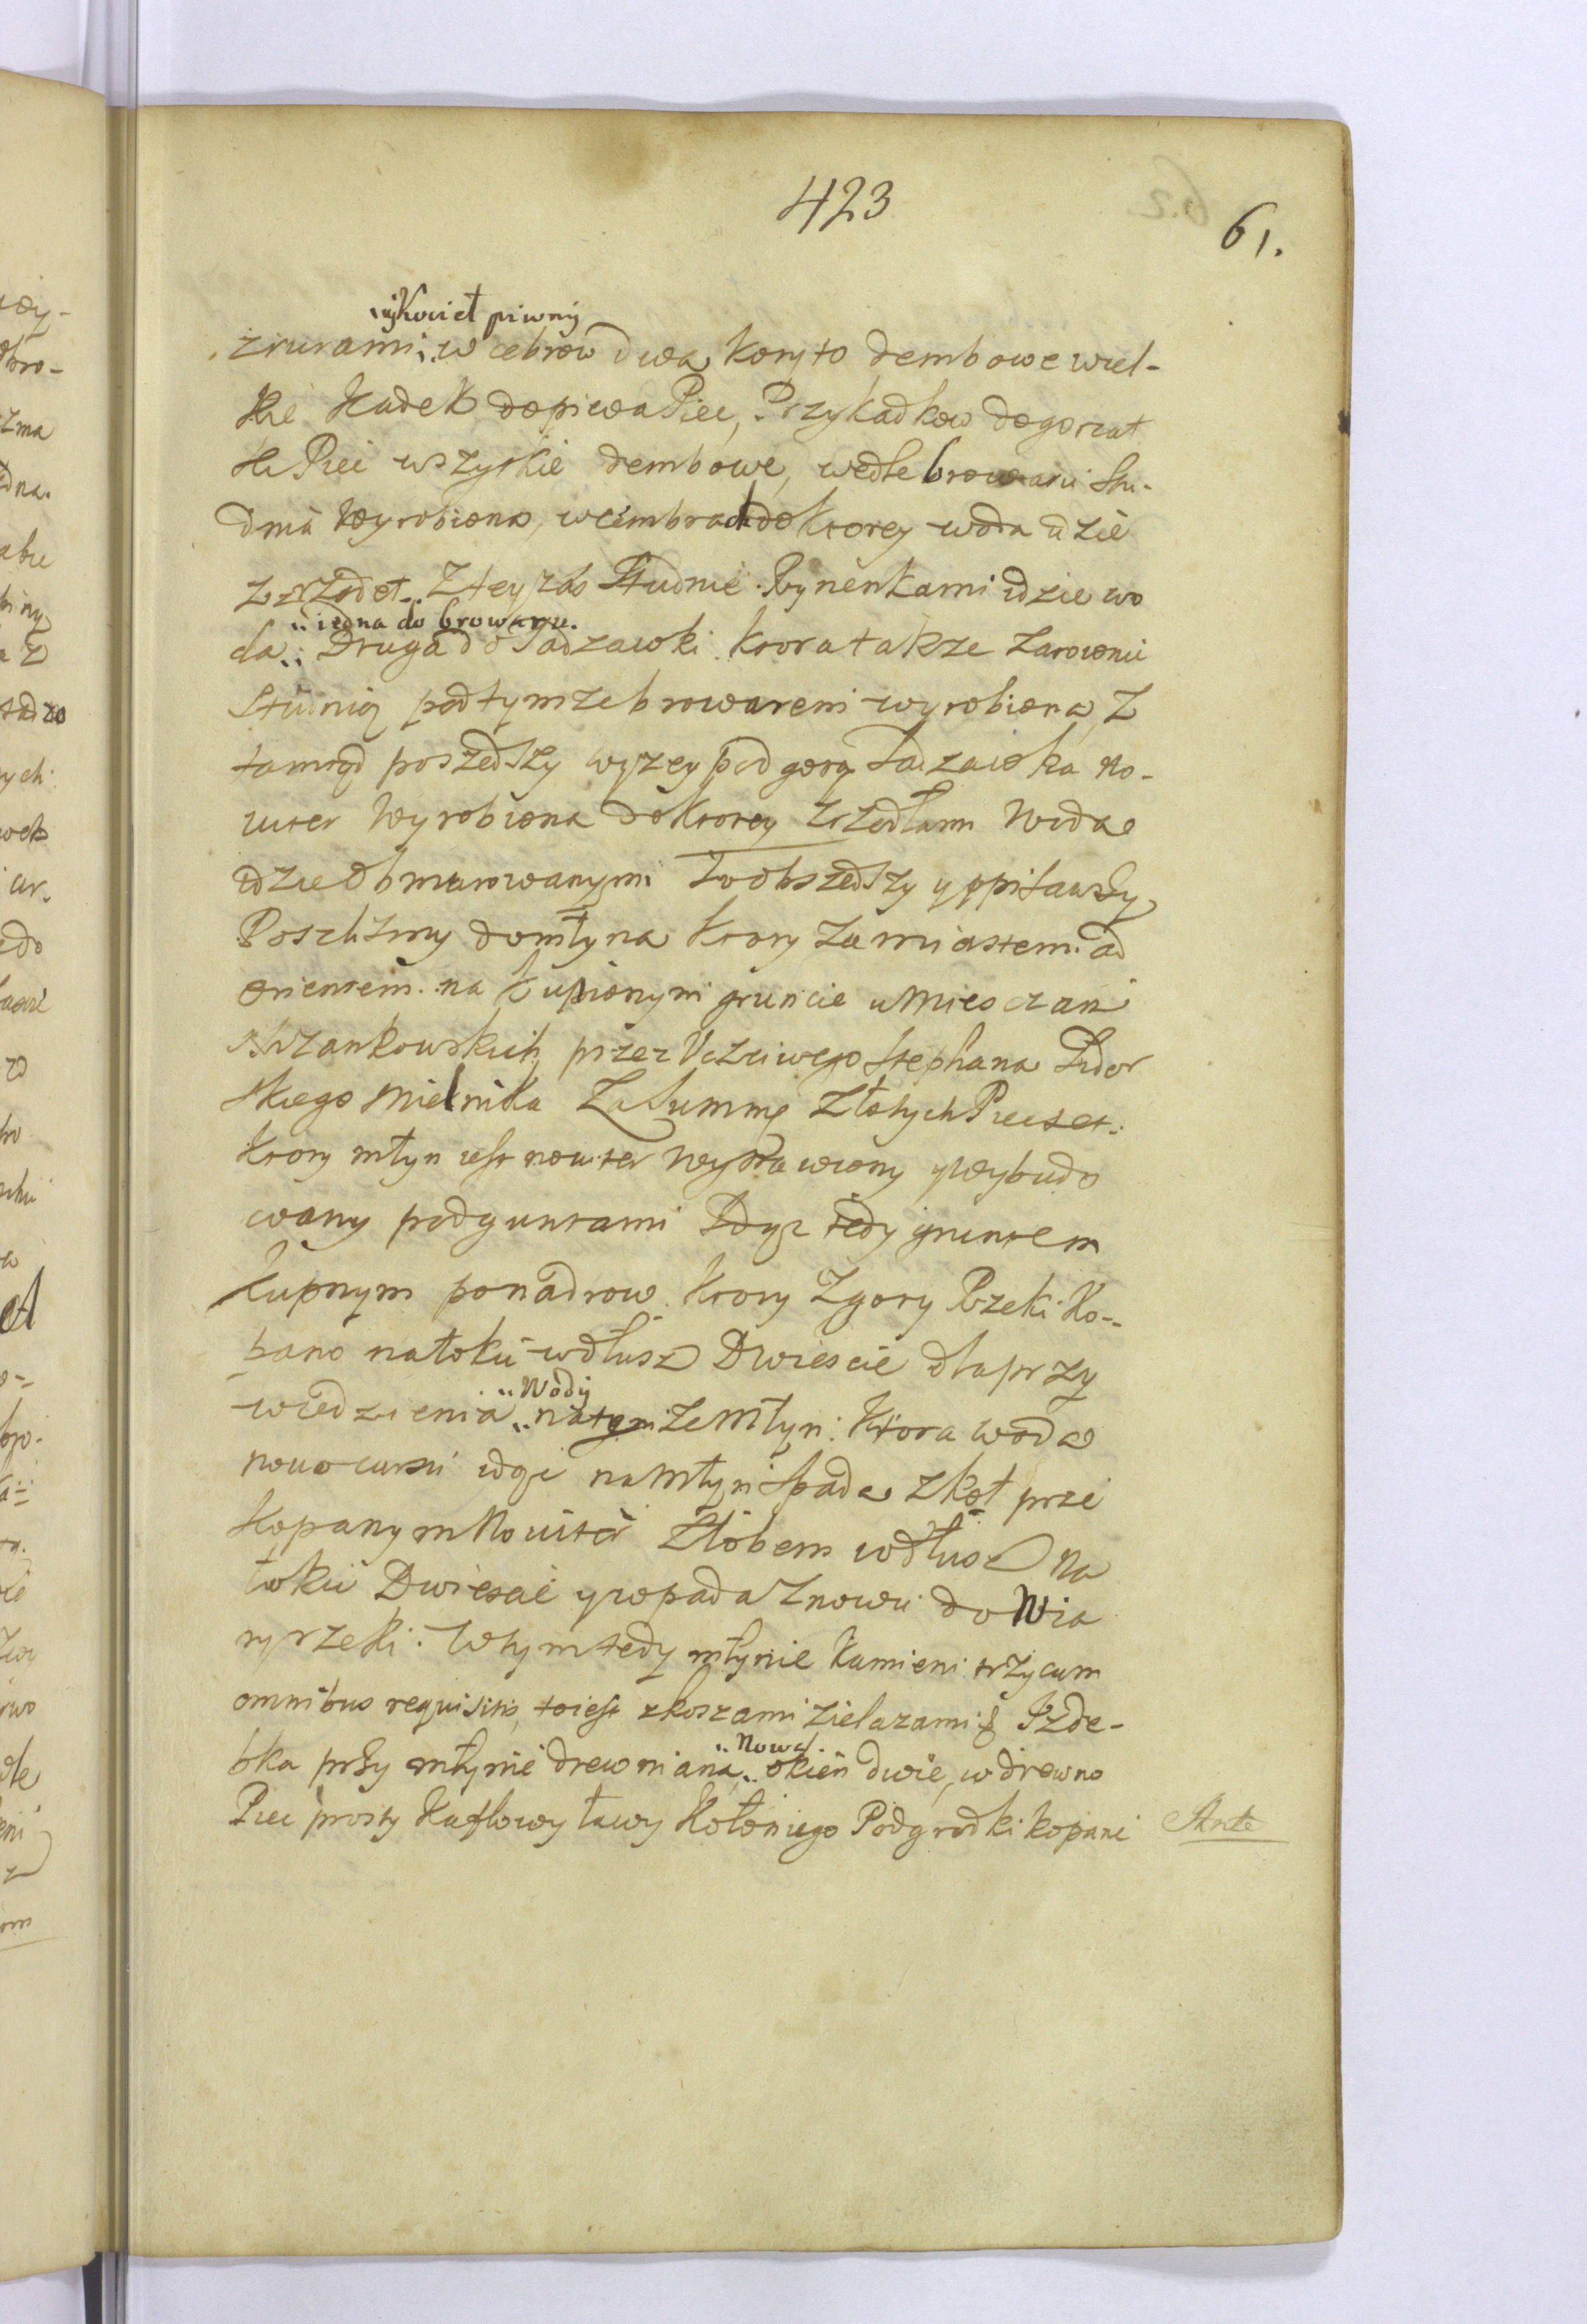 423
61.
y Kocieł piwny
z rurami, w cebrow dwa, Koryto dembowe wiel-
kie Kadek do piwa Pięć, Przykadkow do gorzał
ki Pięć wszytkie dembowe, wedle browaru Stu-
dnia Wyrobiona, w cembrach do ktorey woda idzie
z zrzodeł. Z tey zas Studnie Rynenkami idzie wo
iedna do browaru.
da, Druga do Sadzawki ktora takze zarowem
Studnią pod tymze browarem wyrobiona, Z
tamtąd poszedszy wyzey pod gorą Sadzawka no-
witer Wyrobiona do ktorey zrzodłami Woda
idzie obmurowanymi To obszedszy y opisawszy
Poszlismy do młyna ktory za miastem ad
orientem na kupionym gruncie u Miesczan
przez Vczciwego Stephana
skiego Mielnika Za Summę Złotych Pięcset.
ktory młyn iest nowiter wystawiony y wybudo
wany pod guntami Idąc tedy gruntem
kupnym ponad row ktory z gory Rzeki Ko-
pano na łoku wdłusz Dwiescie dla przy
Wody
wiedzienia na tenże Młyn: Ktora woda
novo cursu idąc na Młyn spada z koł prze
Kopanym Nowiter Złobem wdłusz na
łoku Dwiescie y wpada znowu do Wia
ry rzeki: W tym tedy młynie Kamieni trzy cum
omnibus requisitis, to iest z koszami zielazami & Izde-
Nowa.
bka przy młynie drewniana, okien dwie, w drewno
Piec prosty Kaflowy ławy Koło niego Podgrodki kopani
Ante